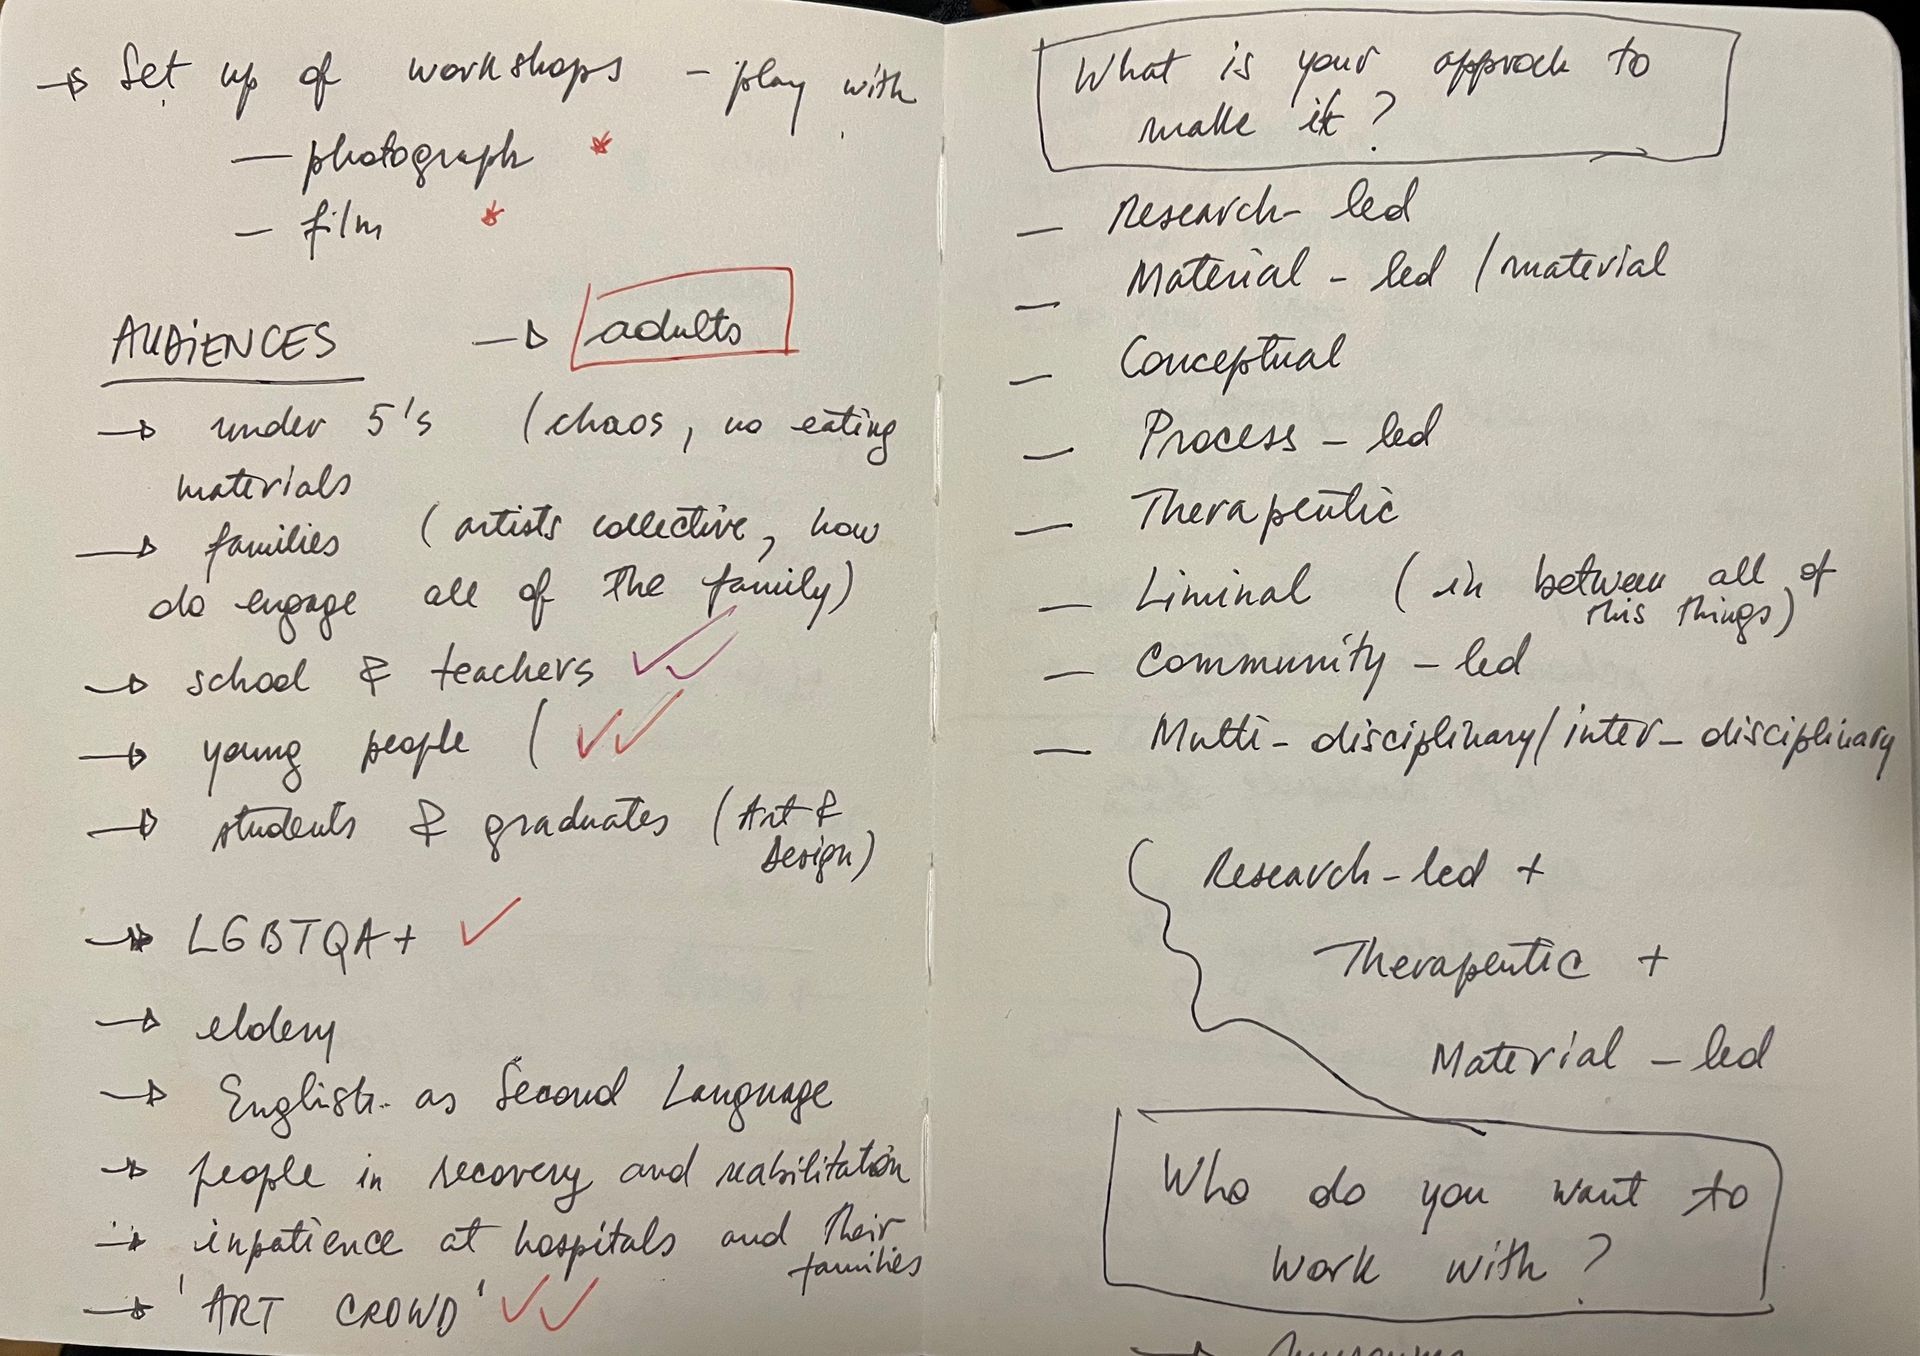 → Set up of workshops - play with
— photograph *
— film *
AUDIENCES → adults
→ under 5's (chaos, no eating
materials
→ families (artists collective, how
do engage all of the family)
→ school & teachers ✓✓
→ young people ( ✓✓
→ students & graduates (Art &
Design)
→ LGBTQA+ ✓
→ eldery
→ English as Second Language
→ people in recovery and reabilitation
→ inpatience at hospitals and their
families
→ 'ART CROWD' ✓✓
What is your approch to
make it?
— Research-led
— Material-led / material
— Conceptual
— Process-led
— Therapeutic
— Liminal (in between all of
this things)
— Community-led
— Multi-disciplinary/inter-disciplinary
Research-led +
Therapeutic +
Material-led
Who do you want to
work with?